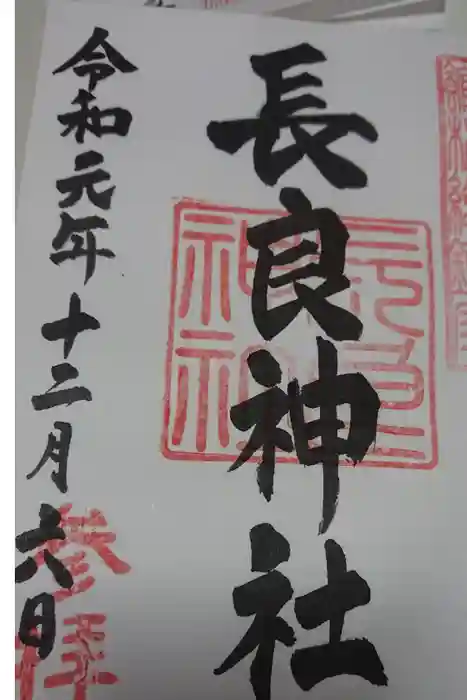 長良神社
令和元年十二月六日
参拝
長良
神社